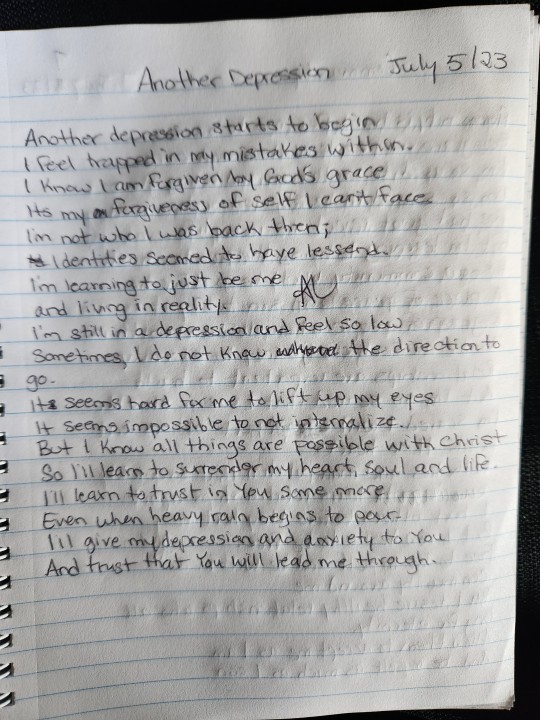 Another Depression July 5/23
Another depression starts to begin
I feel trapped in my mistakes within.
I know I am forgiven by God's grace
Its my forgiveness of self I can't face.
I'm not who I was back then;
Identities seemed to have lessend.
I'm learning to just be me
and living in reality.
I'm still in a depression and feel so low
Sometimes, I do not know the direction to
go.
It seems hard for me to lift up my eyes
It seems impossible to not internalize.
But I know all things are possible with Christ
So I'll learn to surrender my heart, soul and life.
I'll learn to trust in You some more
Even when heavy rain begins to pour.
I'll give my depression and anxiety to You
And trust that You will lead me through.